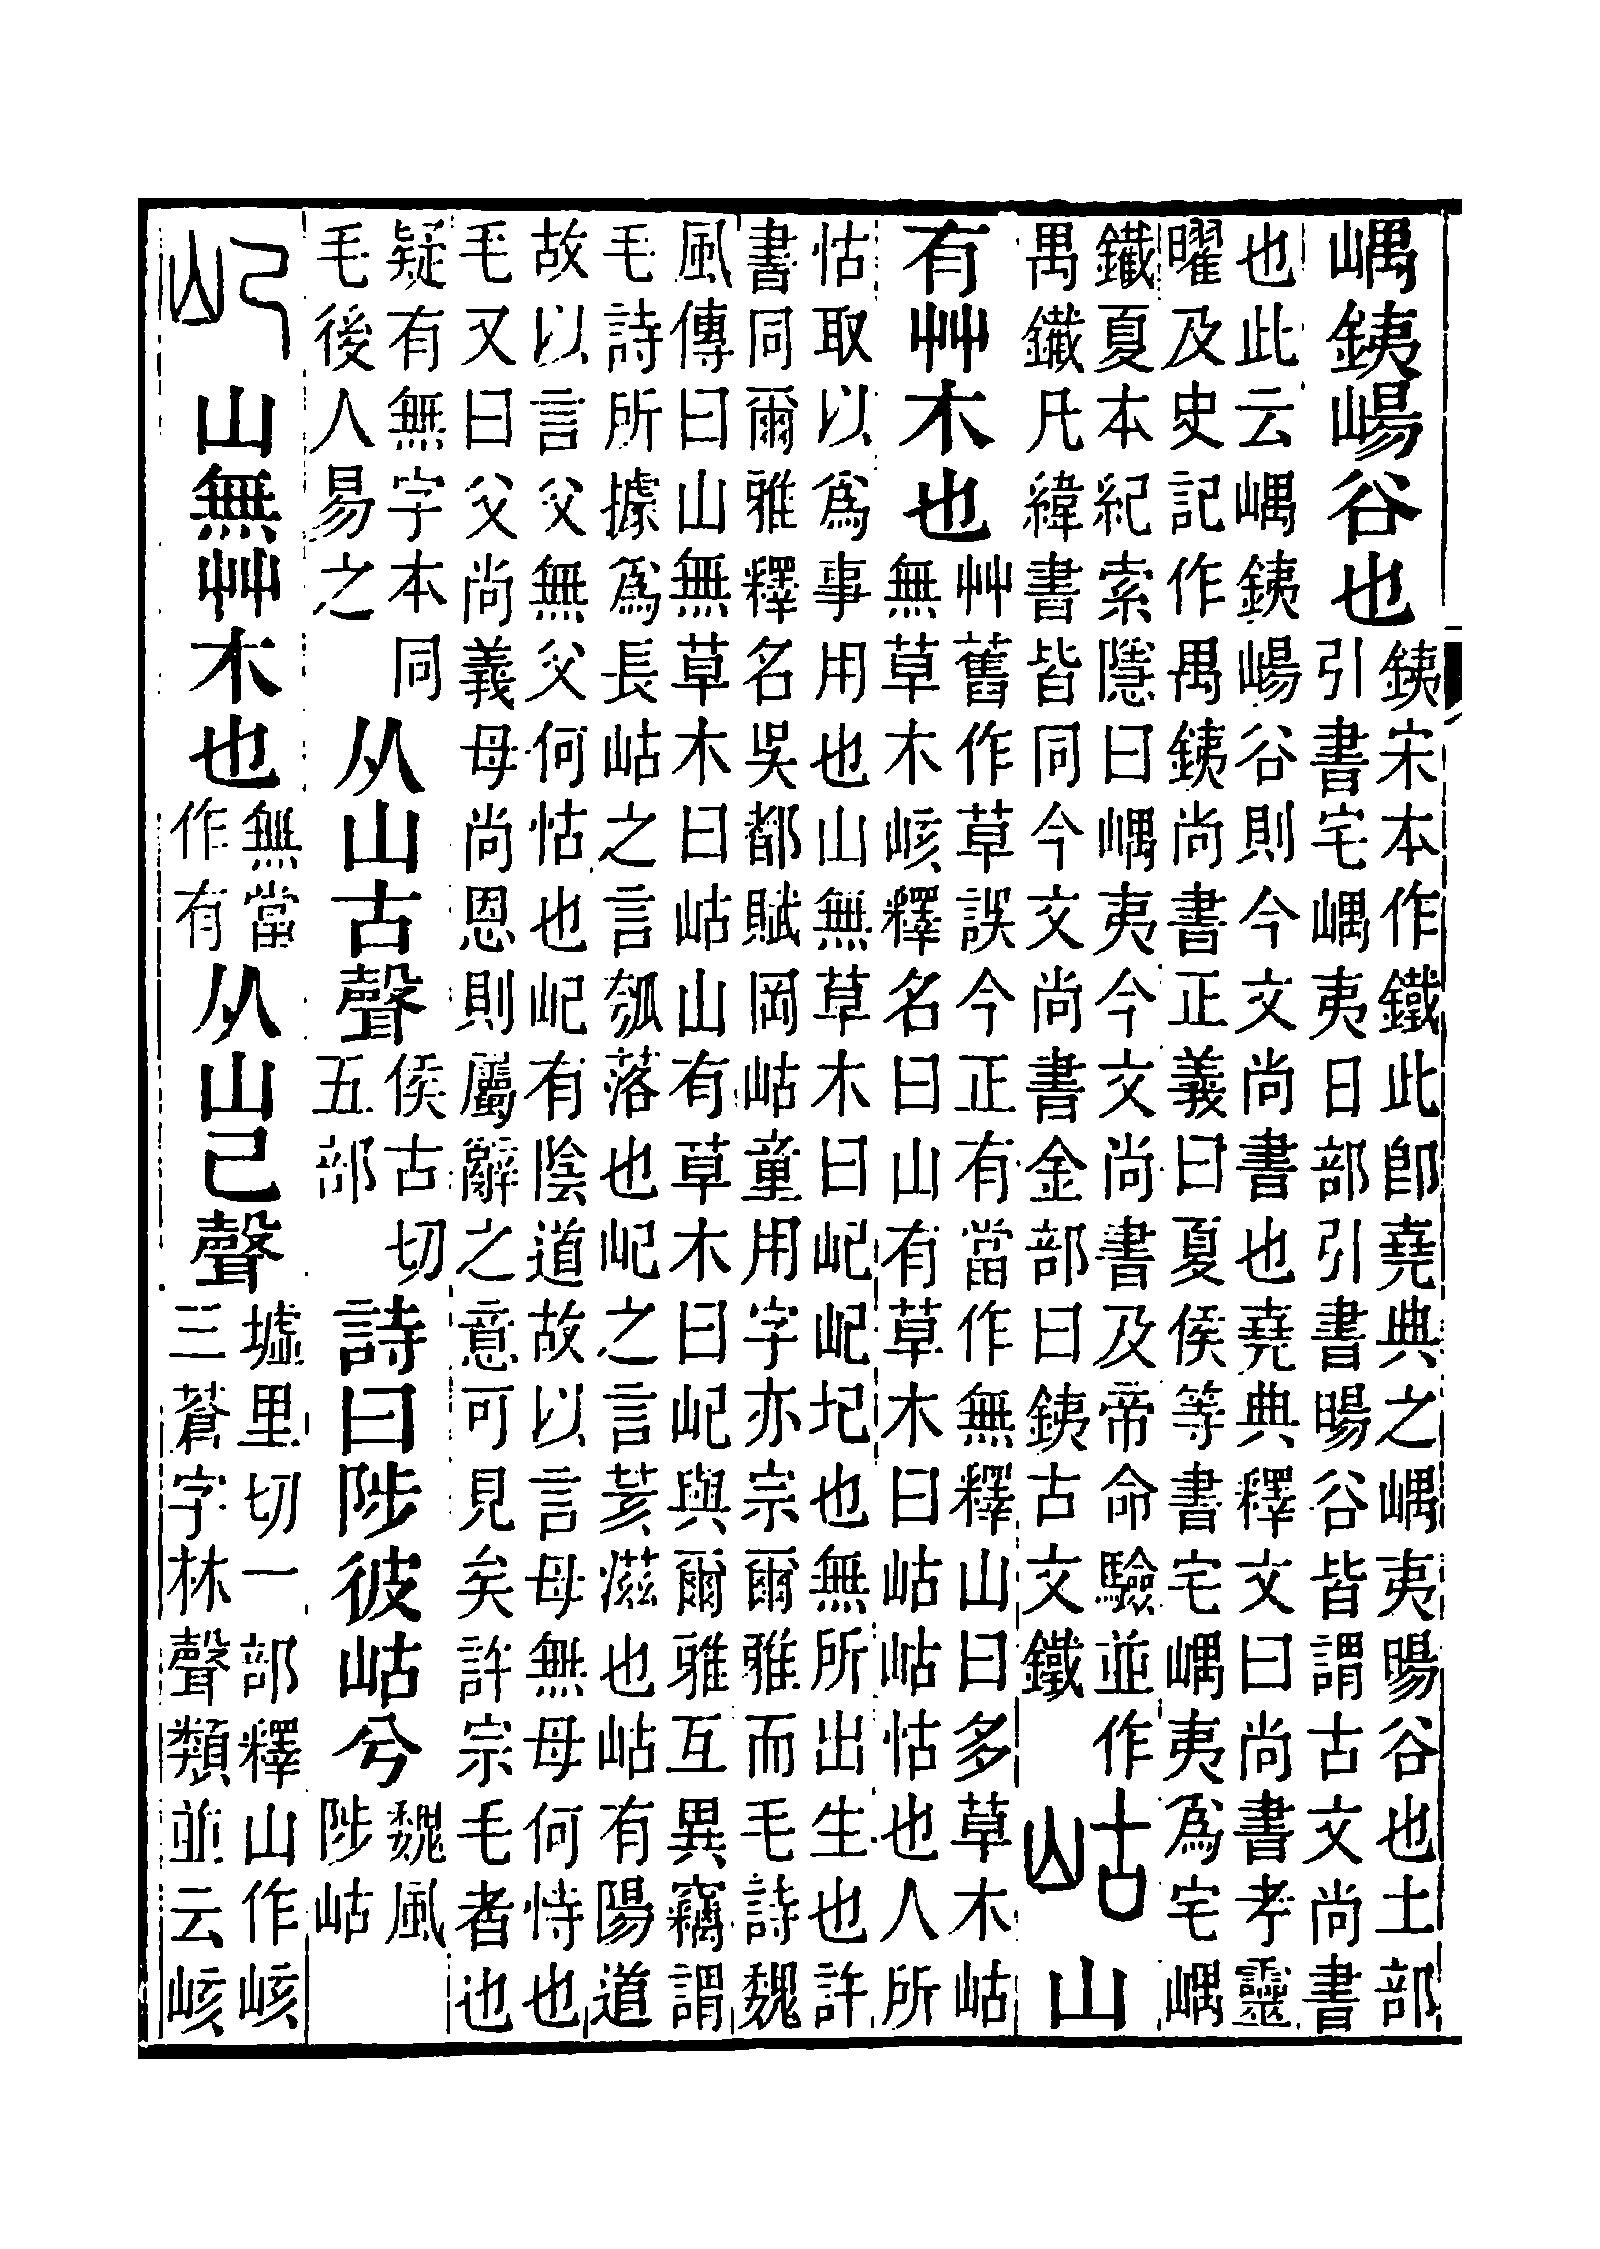 嵎銕崵谷也
銕宋本作鐵此卽堯典之嵎夷暘谷也土部
引書宅嵎夷日部引書暘谷皆謂古文尚書
也此云嵎銕崵谷則今文尚書也堯典釋文曰尚書考靈
曜及史記作禺銕尚書正義曰夏侯等書宅嵎夷爲宅嵎
鐵夏本紀索隱曰嵎夷今文尚書及帝命驗並作
禺鐵凡緯書皆同今文尚書金部曰銕古文鐵
岵 山
有艸木也
艸舊作草誤今正有當作無釋山曰多草木岵
無草木峐釋名曰山有草木曰岵岵怙也人所
怙取以爲事用也山無草木曰屺屺圮也無所出生也許
書同爾雅釋名吳都賦岡岵童用字亦宗爾雅而毛詩魏
風傳曰山無草木曰岵山有草木曰屺與爾雅互異竊謂
毛詩所據爲長岵之言瓠落也屺之言荄滋也岵有陽道
故以言父無父何怙也屺有陰道故以言母無母何恃也
毛又曰父尚義母尚恩則屬辭之意可見矣許宗毛者也
疑有無字本同
毛後人易之
从山古聲
侯古切
五部
詩曰陟彼岵兮
魏風
陟岵
屺 山無艸木也
無當
作有
从山己聲
墟里切一部釋山作峐
三蒼字林聲類並云峐